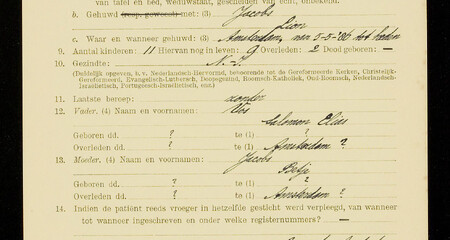 van tafel en bed, weduwstaat, gescheiden van echt, onbekend.
b. Gehuwd (resp. geweest) met: (3) Jacobs
Lion
c. Waar en wanneer gehuwd: (3) Amsterdam, 5-5-'86 tot heden
9. Aantal kinderen: 11 Hiervan nog in leven: 9 Overleden: 2 Dood geboren: —
10. Gezindte: N.-I.
(Duidelijk opgeven, b. v. Nederlandsch-Hervormd, behoorende tot de Gereformeerde Kerken, Christelijk-
Gereformeerd, Evangelisch-Luthersch, Doopsgezind, Roomsch-Katholiek, Oud-Roomsch, Nederlandsch-
Israelietisch, Portugeesch-Israelietisch, enz.)
11. Laatste beroep: zonder
12. Vader. (4) Naam en voornamen: Vos
Salomon Elias
Geboren dd. ? te (1) ?
Overleden dd. ? te (1) Amsterdam ?
13. Moeder. (4) Naam en voornamen: Jacobs
Betje
Geboren dd. ? te (1) ?
Overleden dd. ? te (1) Amsterdam ?
14. Indien de patiënt reeds vroeger in hetzelfde gesticht werd verpleegd, van wanneer
tot wanneer ingeschreven en onder welke registernummers? —